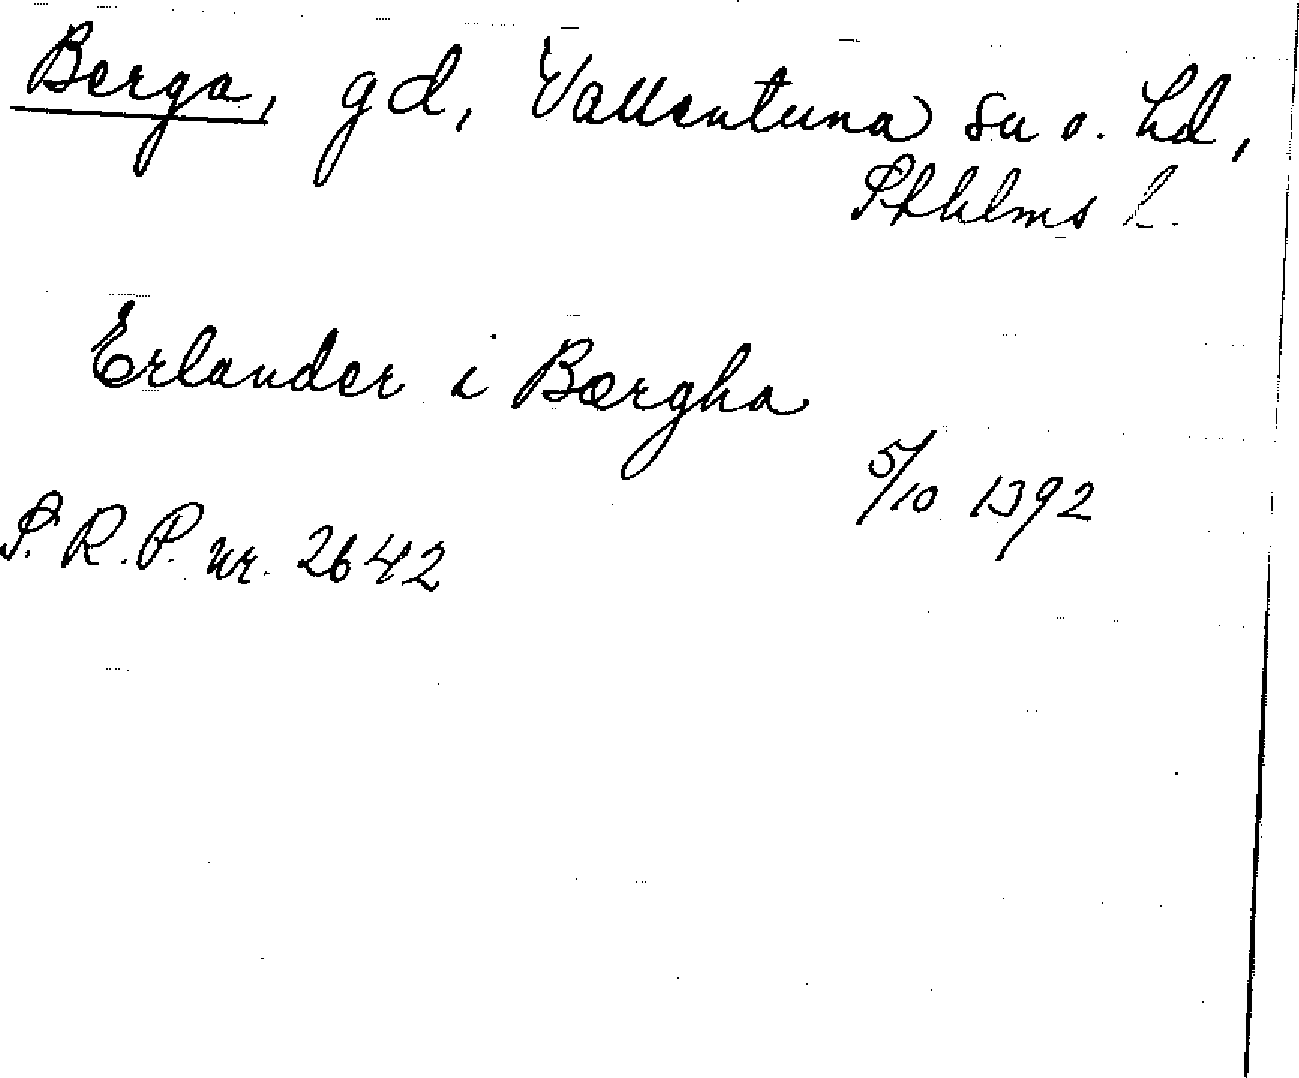 Berga, gd, Vallentuna sn o. hd,
Sthlms l.
Erlander i Bærgha
5/10 1392
S. R. P. nr. 2642